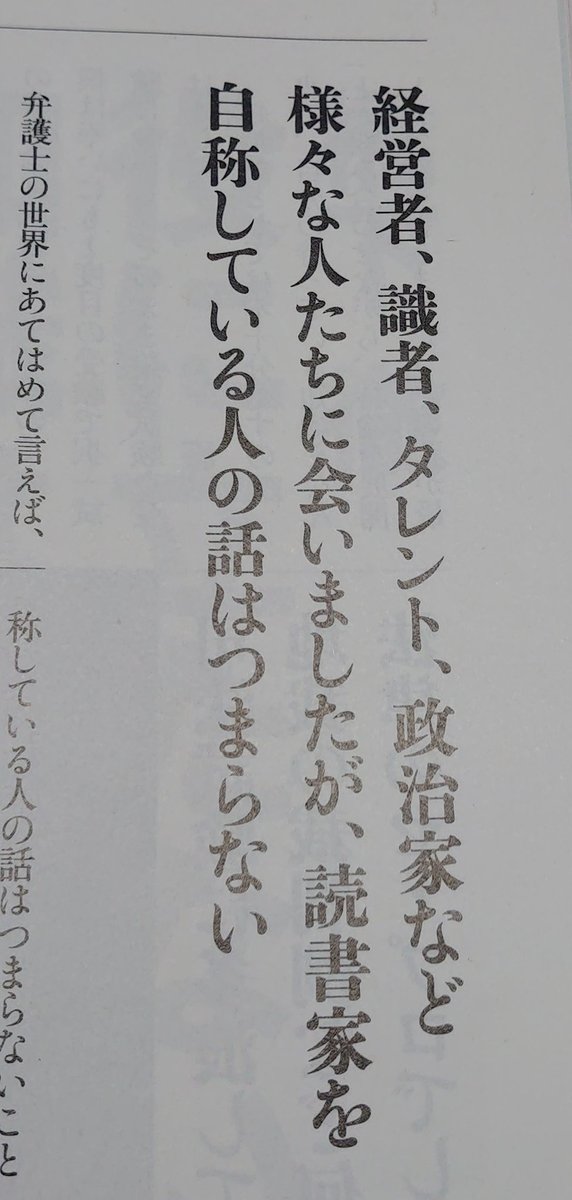 経営者、識者、タレント、政治家など
様々な人たちに会いましたが、読書家を
自称している人の話はつまらない
弁護士の世界にあてはめて言えば、
称している人の話はつまらないこと